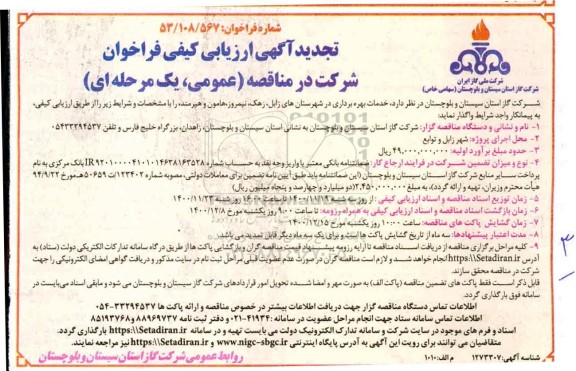 شماره فراخوان: ۵۳/۱۰۸/۵۶۷
تجدید آگهی ارزیابی کیفی فراخوان
شرکت در مناقصه (عمومی، یک مرحله ای)
شرکت ملی گاز ایران
شرکت گاز استان سیستان و بلوچستان (سهامی خاص)
شرکت گاز استان سیستان و بلوچستان در نظر دارد، خدمات بهره برداری در شهرستان های زابل، زهک، نیمروز، هامون و هیرمند را با مشخصات و شرایط زیر را از طریق ارزیابی کیفی،
به پیمانکار واجد شرایط واگذار نماید:
۱- نام و نشانی و دستگاه مناقصه گزار: شرکت گاز استان سیستان و بلوچستان به نشانی استان سیستان و بلوچستان، زاهدان، بزرگراه خلیج فارس و تلفن ۰۵۴۳۳۲۹۴۵۳۷
۲- محل اجرای پروژه: شهر زابل و توابع
۳- حدود مبلغ برآورد اولیه: ۴۹,۰۰۰,۰۰۰,۰۰۰ ریال
۴- نوع و میزان تضمین شرکت در فرایند ارجاع کار: ضمانتنامه بانکی معتبر یا واریز وجه نقد به حساب شماره بانک مرکزی به نام
پرداخت سایر منابع شرکت گاز استان سیستان و بلوچستان (این ضمانتنامه باید طبق آیین نامه تضمین برای معاملات دولتی، مصوبه شماره ۱۲۳۴۰۲/ت ۵۰۶۵۹هـ مورخ ۹۴/۹/۲۲
هیأت محترم وزیران، تهیه و ارائه گردد)، به مبلغ ۲,۴۵۰,۰۰۰,۰۰۰ (دو میلیارد و چهارصد و پنجاه میلیون ریال)
۵- زمان توزیع اسناد مناقصه و اسناد ارزیابی کیفی: از روز سه شنبه مورخ ۱۴۰۰/۱۱/۱۹ تا ساعت ۱۶:۰۰ روز شنبه مورخ ۱۴۰۰/۱۱/۲۳
۶- زمان بازگشت اسناد مناقصه و اسناد ارزیابی کیفی به همراه رزومه: تا ساعت ۹:۰۰ روز یکشنبه مورخ ۱۴۰۰/۱۲/۸
۷- زمان گشایش پاکت های مناقصه: ساعت ۱۰:۰۰ روز یکشنبه مورخ ۱۴۰۰/۱۲/۱۵
۸- مدت اعتبار پیشنهادها: سه ماه از تاریخ گشایش پاکت ها است و برای یک سه ماه دیگر قابل تمدید می باشد.
۹- کلیه مراحل برگزاری مناقصه از دریافت اسناد مناقصه تا ارایه رزومه پیشنهاد قیمت مناقصه گران و بازگشایی پاکت ها از طریق درگاه سامانه تدارکات الکترونیکی دولت (ستاد) به
آدرس https:\\Setadiran.ir انجام خواهد شد و لازم است مناقصه گران در صورت عدم عضویت قبلی مراحل ثبت نام در سایت مذکور و دریافت گواهی امضای الکترونیکی را جهت
شرکت در مناقصه محقق سازند.
قابل ذکر است فقط پاکت های تضمین مناقصه (پاکت الف) به صورت مهر و امضا شده تحویل امور قراردادهای شرکت گاز استان سیستان و بلوچستان می شود و مابقی اسناد می بایست در
سامانه فوق بارگذاری گردد.
اطلاعات تماس دستگاه مناقصه گزار جهت دریافت اطلاعات بیشتر در خصوص مناقصه و ارائه پاکت ها ۳۳۲۹۴۵۳۷-۰۵۴
اطلاعات تماس سامانه ستاد جهت انجام مراحل عضویت در سامانه: ۴۱۹۳۴-۰۲۱ و دفتر ثبت نامه ۸۸۹۶۹۷۳۷ و ۸۵۱۹۳۷۶۸
اسناد و فرم های موجود در سایت شرکت و سامانه تدارک الکترونیک دولت می بایست تهیه و در سامانه https:\\Setadiran.ir بارگذاری گردد.
متقاضیان می توانند برای رویت این آگهی به آدرس پایگاه اینترنتی www.nigc-sbgc.ir و https:\\Setadiran.ir نیز مراجعه نمایند.
شناسه آگهی: ۱۲۷۳۳۰۷ م الف: ۱۰۱۰ روابط عمومی شرکت گاز استان سیستان و بلوچستان